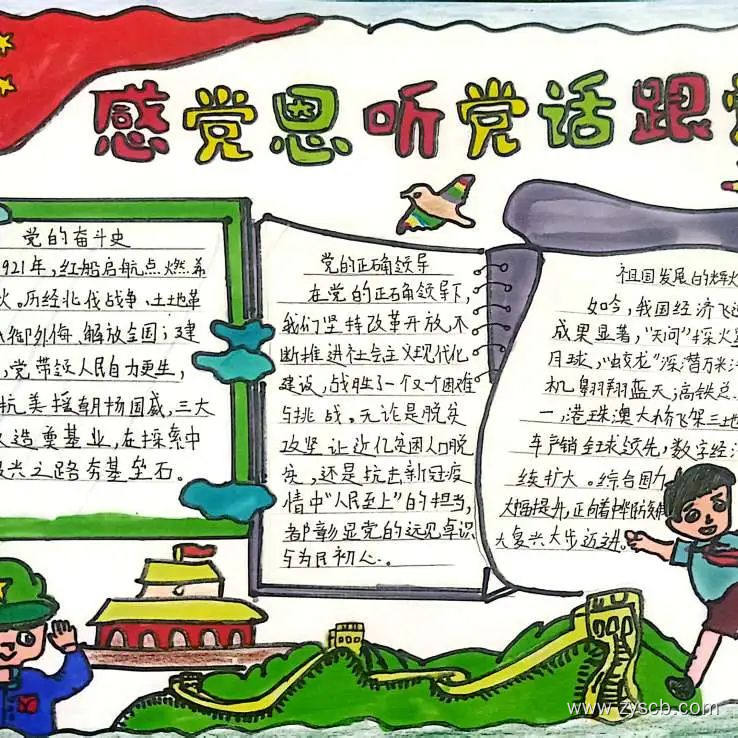 感党恩听党话跟党
党的奋斗史
921年,红船启航点燃希
火。历经北伐战争、土地革
御外侮、解放全国;建
,党带领人民自力更生,
抗美援朝扬国威,三大
造奠基业,在探索中
兴之路夯基垒石。
党的正确领导
在党的正确领导下,
我们坚持改革开放,不
断推进社会主义现代化
建设,战胜了一个又一个困难
与挑战。无论是脱贫
攻坚让近亿贫困人口脱
贫,还是抗击新冠疫
情中“人民至上”的担当,
都彰显党的远见卓识
与为民初心。
祖国发展的辉
如今,我国经济飞
成果显著,“天问”探火
月球,“蛟龙”深潜万米
机翱翔蓝天;高铁总
一,港珠澳大桥飞架三地
车产销全球领先,数字经
续扩大。综合国力
大幅提升,正向着中华民族
大复兴大步迈进。
www.zyscb.com